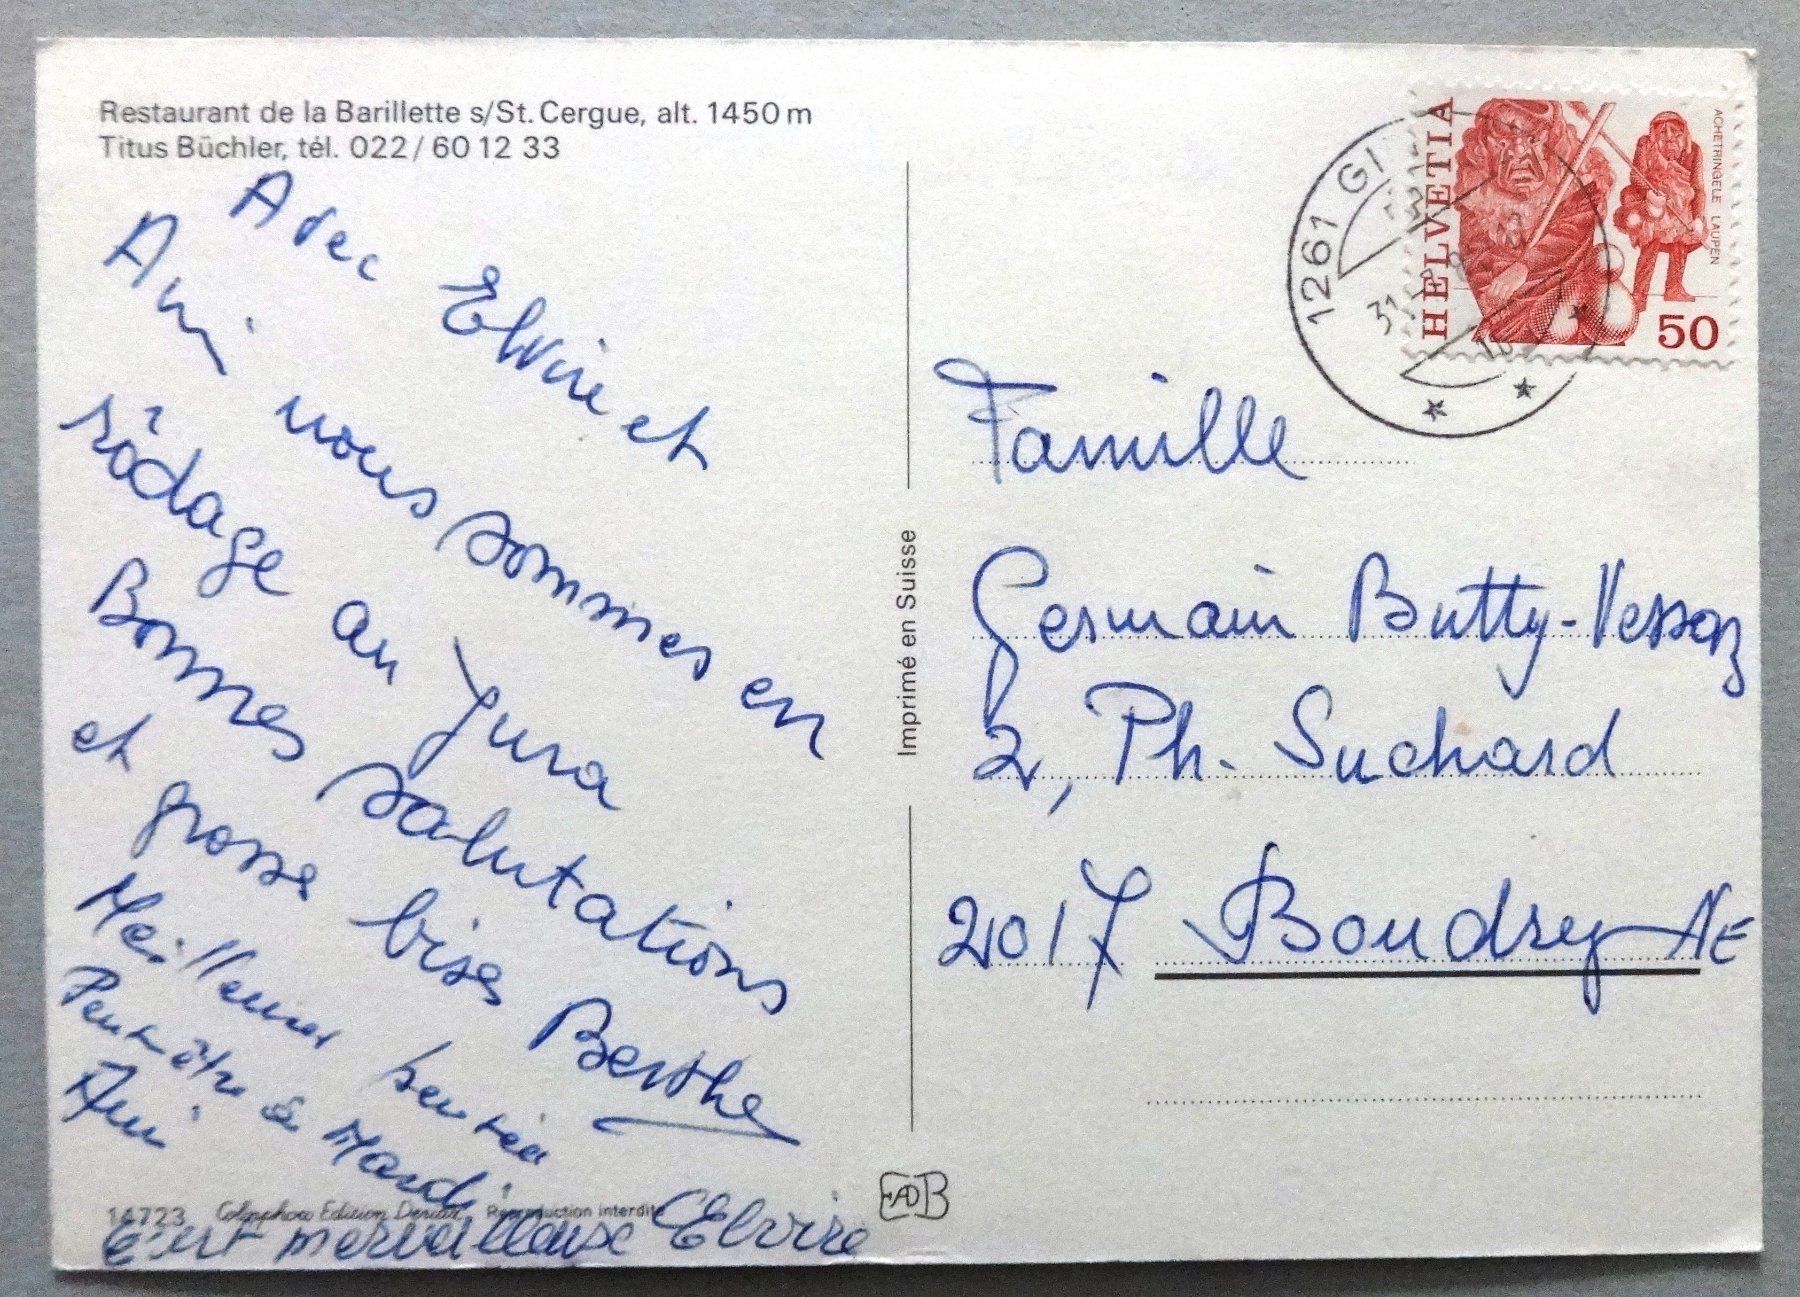 Restaurant de la Barillette s/St. Cergue, alt. 1450 m
Titus Büchler, tél. 022/60 12 33
Avec Elvire et
Ami nous sommes en
rôdage au Jura
Bonnes salutations
et grosses bises Berthe
Meilleures pensées
Peut-être à Mardi
Ami
C'est merveilleuse Elvire
14723 Colorphoto Edition Reproduction interdite
Imprimé en Suisse
EADB
1261 GI
31
HELVETIA
ACHETRINGELE LAUPEN
50
Famille
Germain Butty-Vessaz
2, Ph. Suchard
2017 Boudry NE